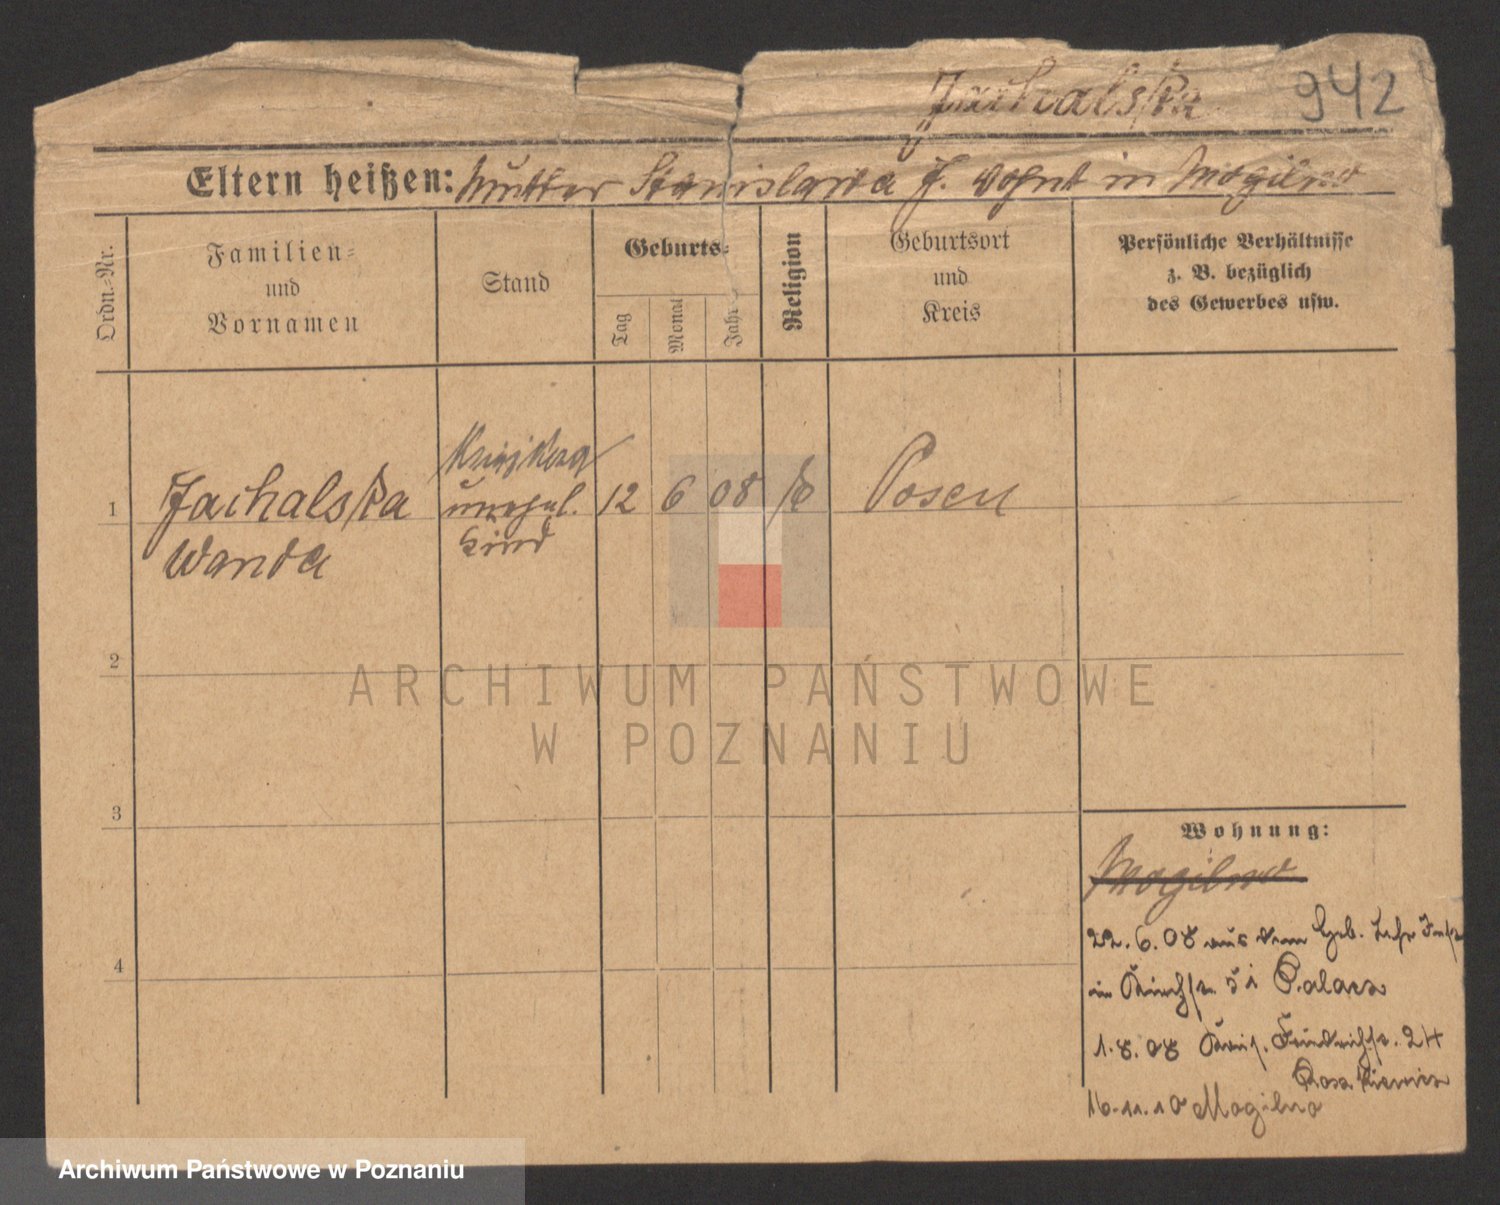 Jachalska 942
Eltern heißen: Mutter Stanislawa J. wohnt in Mogilno
Ordn.-Nr.
Familien-
und
Vornamen
Stand
Geburts-
Tag
Monat
Jahr
Religion
Geburtsort
und
Kreis
Persönliche Verhältnisse
z. B. bezüglich
des Gewerbes usw.
1
Jachalska
Wanda
unehel.
Kind
12 6 08 k
Posen
2
3
4
Wohnung:
Mogilno
22.6.08 aus dem Geb. Lehr Inst
in
1.8.08 Friedrichstr. 24
16.11.10 Mogilno
ARCHIWUM PAŃSTWOWE
W POZNANIU
Archiwum Państwowe w Poznaniu